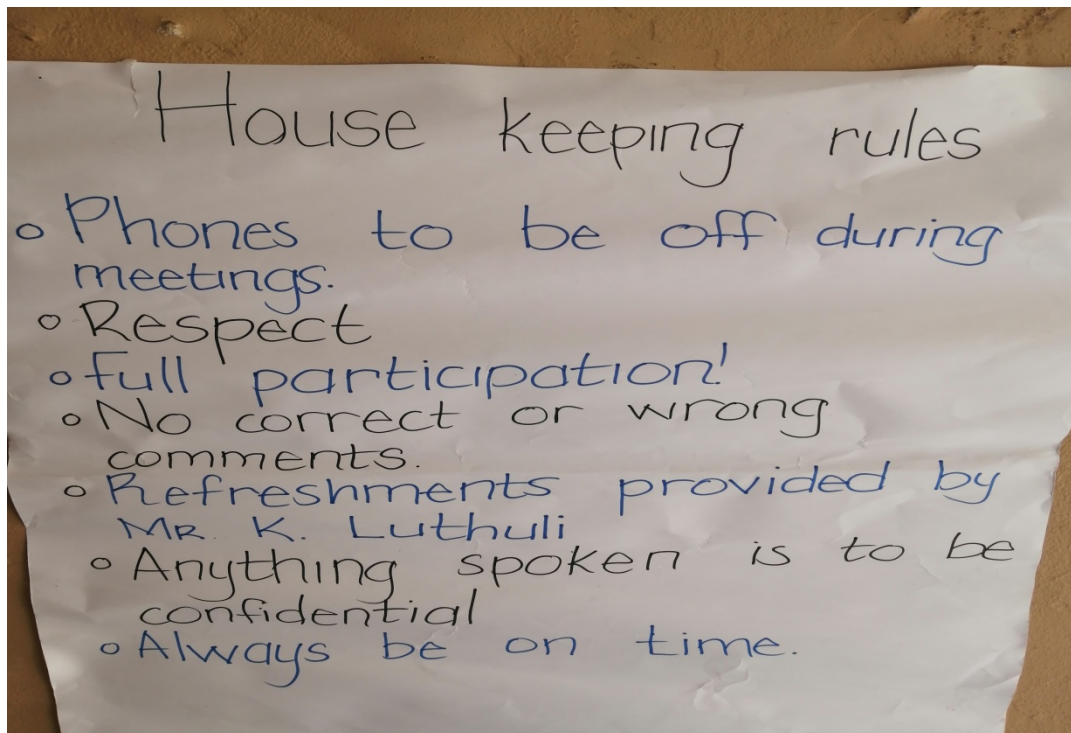 House keeping rules
o Phones to be off during
meetings.
o Respect
o full participation!
o No correct or wrong
comments.
o Refreshments provided by
MR. K. Luthuli
o Anything spoken is to be
confidential
o Always be on time.